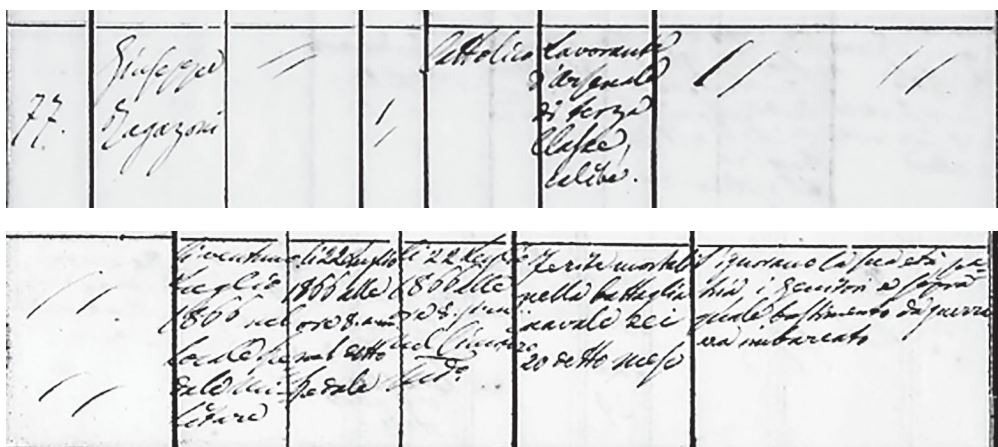 77.
Giuseppe
Ragazoni
"
"
Cattolico
Lavorante
d'Arsenale
di terza
Classe,
celibe.
"
"
"
"
li ventuno
Luglio
1866 nel
locale
dale Mi-
litare
li 22 Luglio
1866 alle
ore 8. ant.
nel detto
Ospedale
li 22 Luglio
1866 alle
ore 8.
nel Cimitero
Ferite mortali
nella battaglia
navale dei
20 detto mese
S'ignorano la sua età pa-
tria, i genitori e sopra
quale bastimento da guerra
era imbarcato